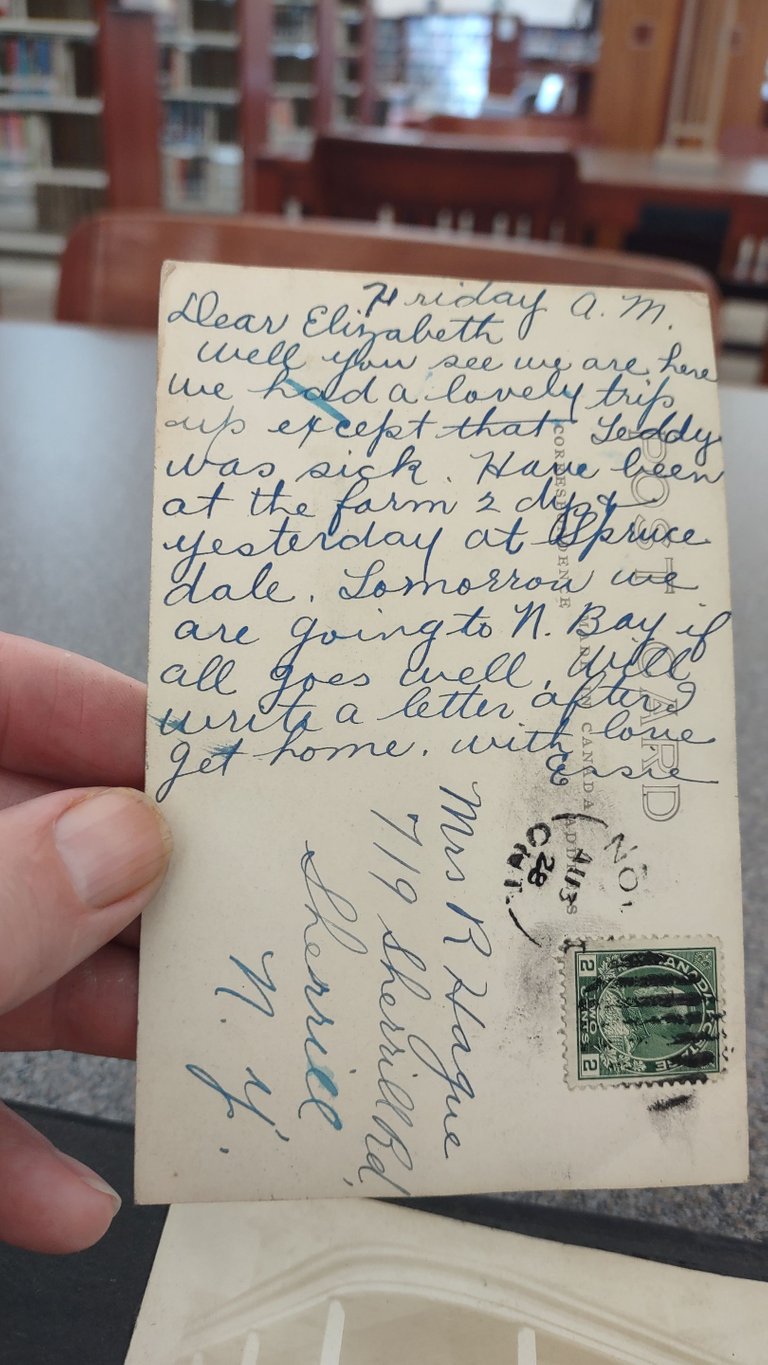 Friday A. M.
Dear Elizabeth
Well you see we are here
we had a lovely trip
up except that Teddy
was sick. Have been
at the farm 2 dys &
yesterday at Spruce
dale. Tomorrow we
are going to N. Bay if
all goes well. Will
write a letter after I
get home. with love
POST CARD
CORRESPONDENCE
MADE IN CANADA
ADDRESS
Mrs R Hague
719 Sherrill Rd,
Sherrill
N. Y.
28
ONT.
CANADA POSTAGE
2 TWO CENTS 2